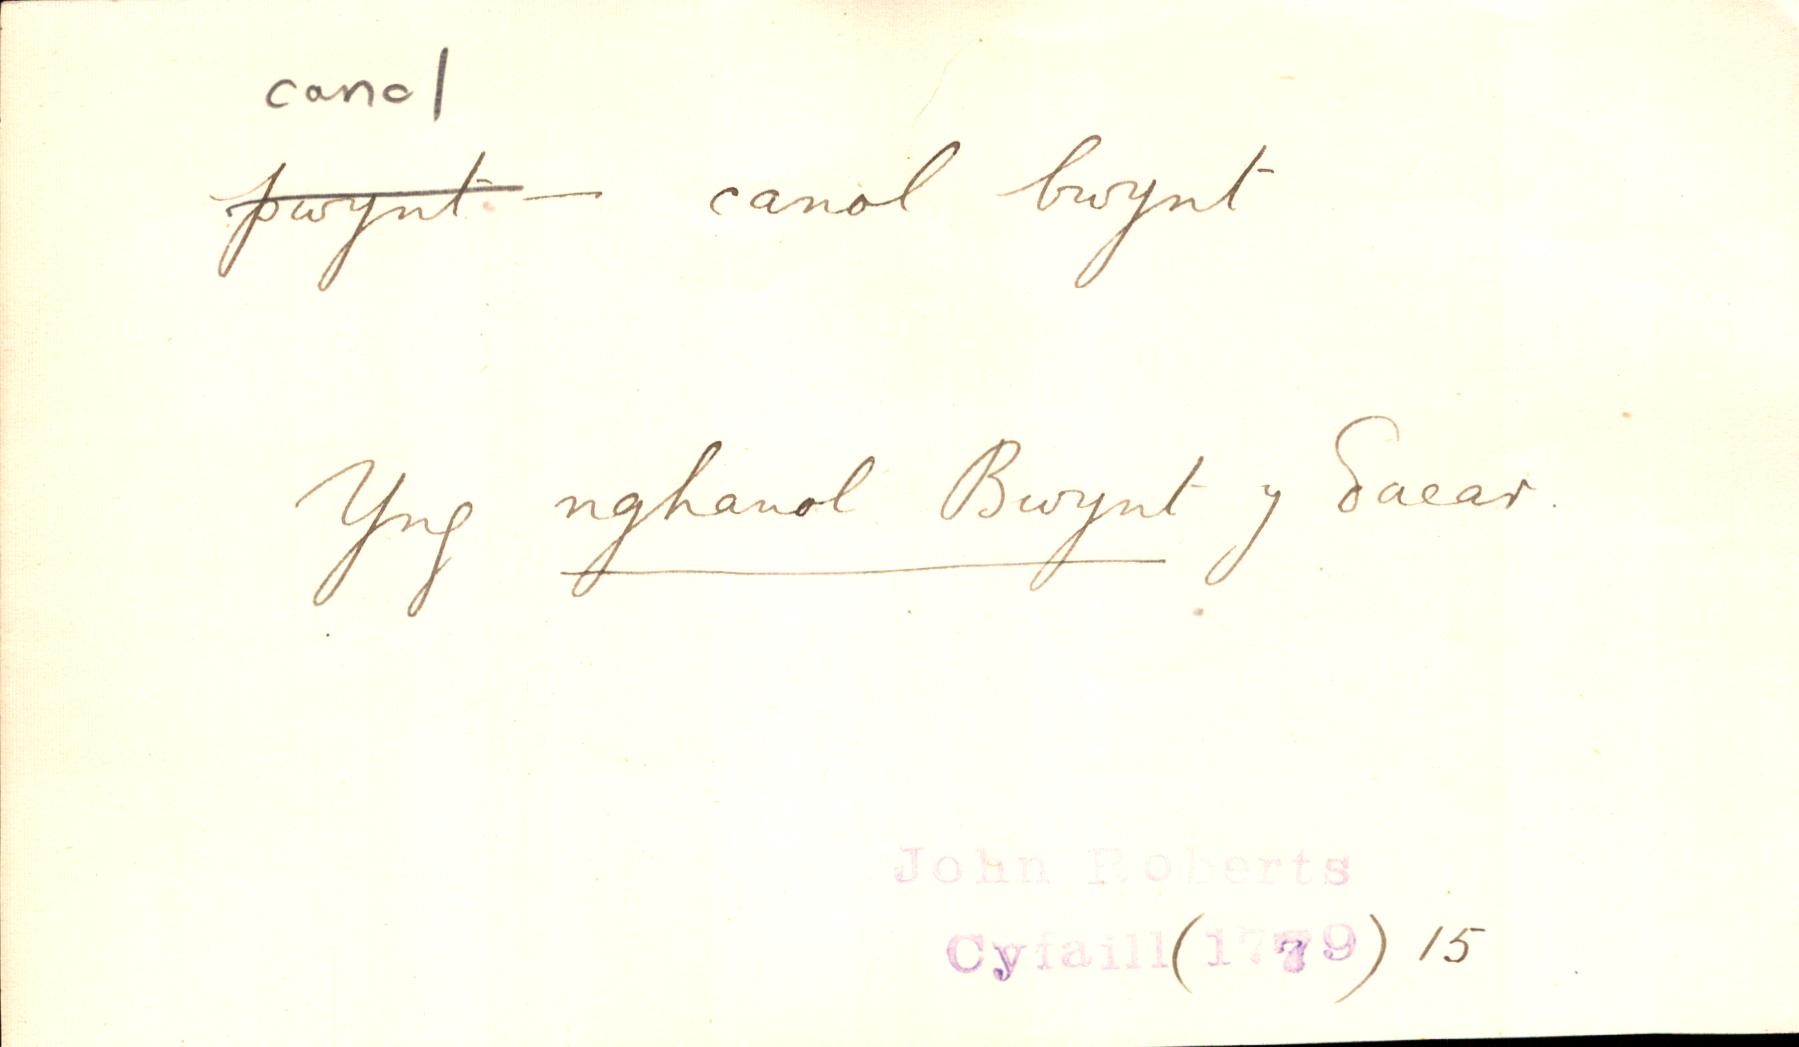 canol
pwynt. — canol bwynt
Yng nghanol Bwynt y δaear.
John Roberts
Cyfaill (1779) 15